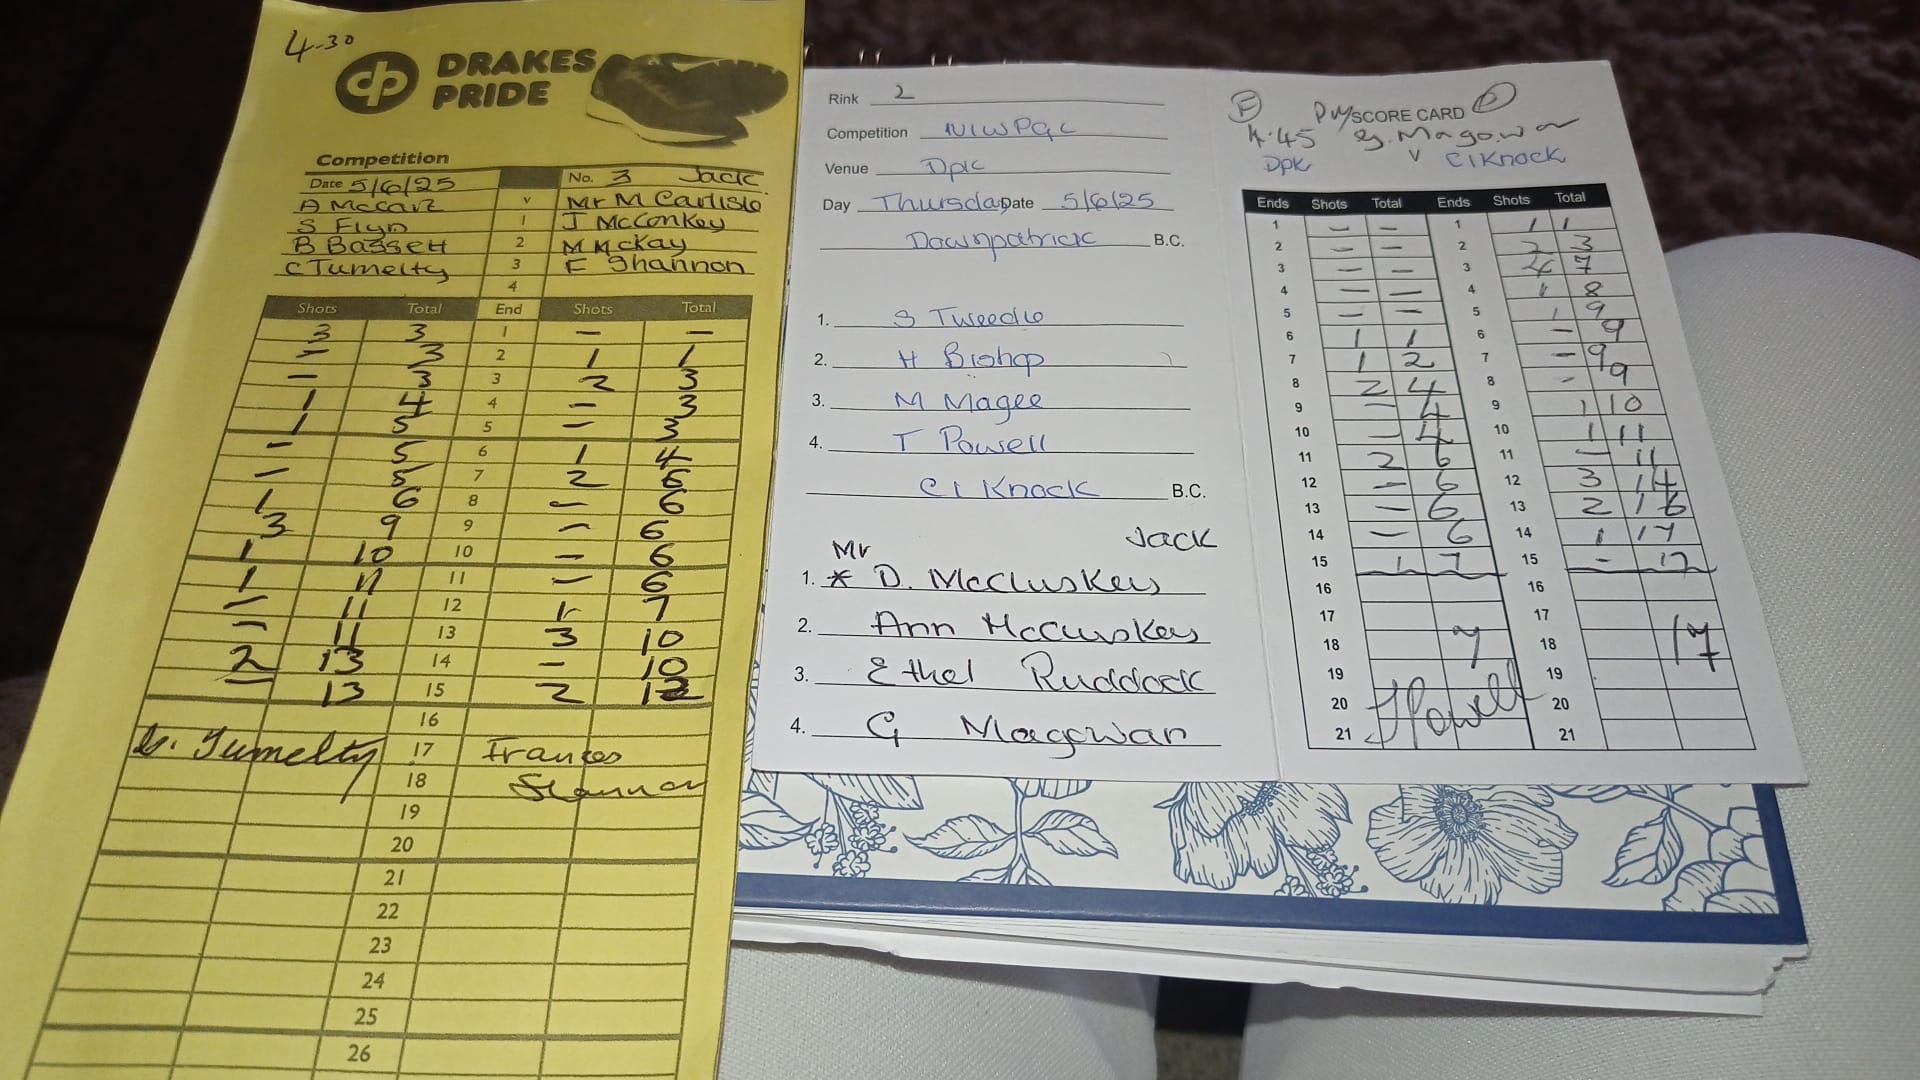 4-30
DRAKES
PRIDE
Competition
Date 5/6/25 No. 3 Jack
A McCart v Mr M Carlisle
S Flyn 1 J McConkey
B Bassett 2 M McKay
C Tumelty 3 F Shannon
4
Shots Total End Shots Total
3 3 1 - -
- 3 2 1 1
- 3 3 2 3
1 4 4 - 3
1 5 5 - 3
- 5 6 1 4
- 5 7 2 6
1 6 8 - 6
3 9 9 - 6
1 10 10 - 6
1 11 11 - 6
- 11 12 1 7
- 11 13 3 10
2 13 14 - 10
- 13 15 2 12
16
Tumelty 17 Frances
18 Shannon
19
20
21
22
23
24
25
26
Rink 2
Competition NIWPGL
Venue Dpk
Day Thursday Date 5/6/25
Downpatrick B.C.
1. S Tweedie
2. H Bishop
3. M Magee
4. T Powell
CI Knock B.C.
Mr Jack
1. * D. McCluskey
2. Ann McCluskey
3. Ethel Ruddock
4. G Magowan
F SCORE CARD P
4.45 G. Magowan
Dpk v CI Knock
Ends Shots Total Ends Shots Total
1 - - 1 1 1
2 - - 2 2 3
3 - - 3 4 7
4 - - 4 1 8
5 - - 5 1 9
6 1 1 6 - 9
7 1 2 7 - 9
8 2 4 8 - 9
9 - 4 9 1 10
10 - 4 10 1 11
11 2 6 11 - 11
12 - 6 12 3 14
13 - 6 13 2 16
14 - 6 14 1 17
15 1 7 15 - 17
16 16
17 17
18 7 18 17
19 19
20 TPowell 20
21 21